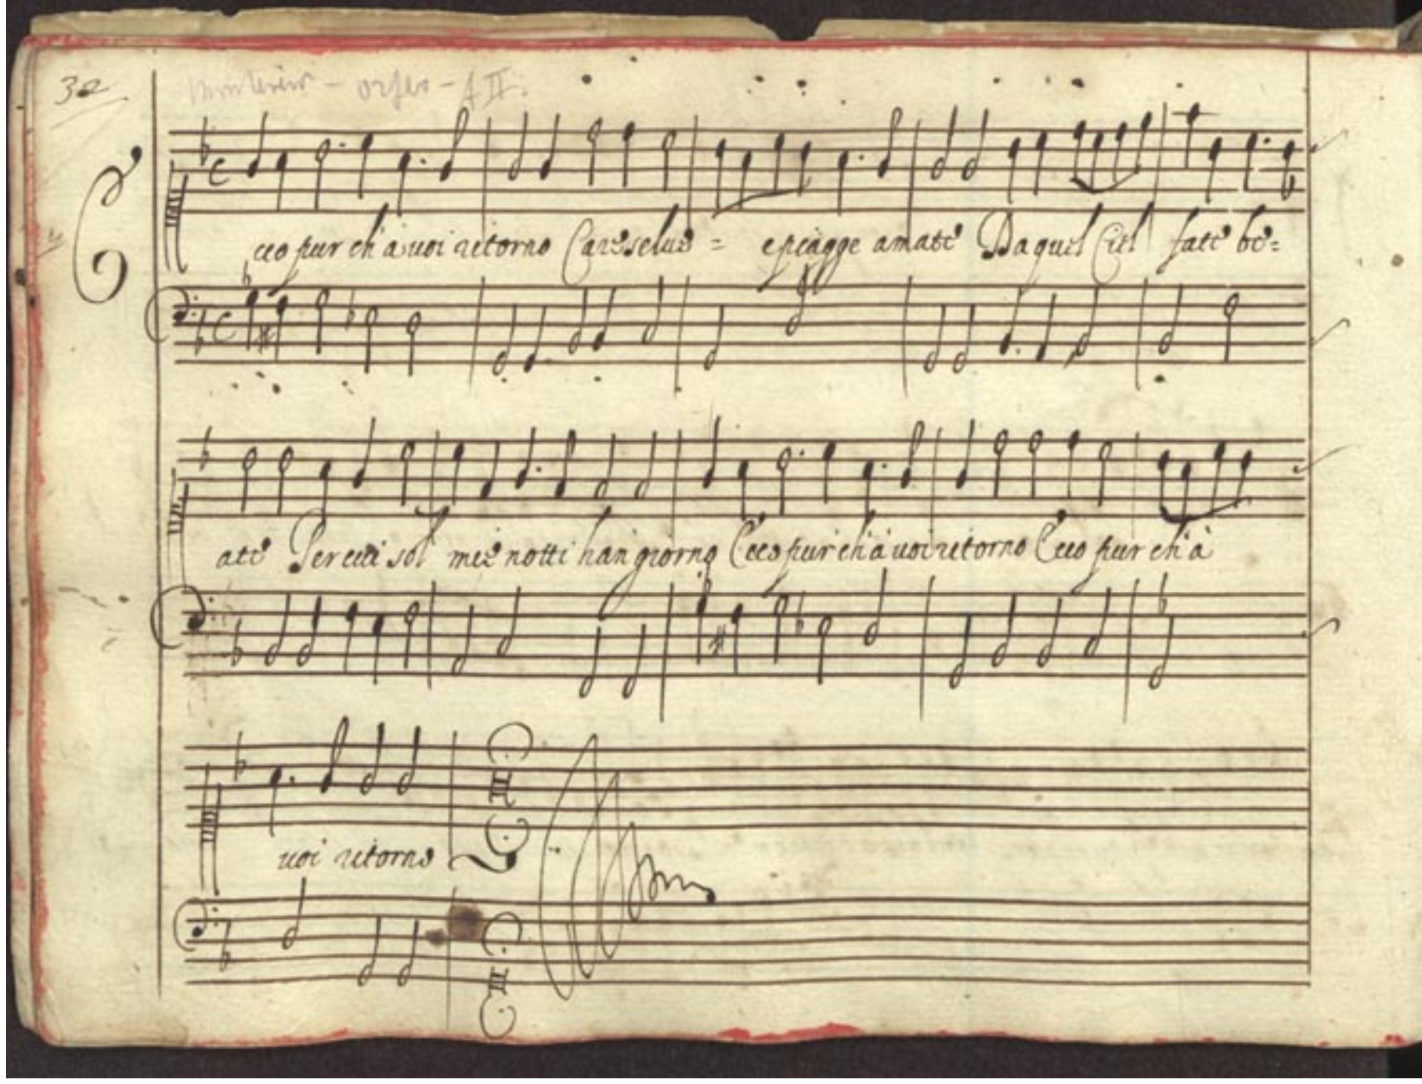 32 Monteverdi - Orfeo - A II.
E cco pur ch'à voi ritorno Care selue = e piagge amate Da quel Ciel fatt be=
ate Per cui sol mie notti han giorno Ecco pur ch'à uoi ritorno Ecco pur ch'à
uoi ritorno